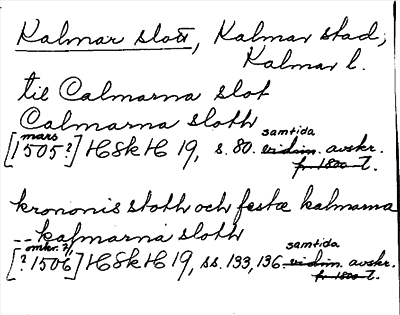 Kalmar slott, Kalmar stad,
Kalmar l.
til Calmarna slot
Calmarna sloth
[mars 1505?] HSkH 19, s. 80. samtida vidim. avskr.
fr 1800-t.
krononis sloth och feste kalmarna
-- kalmarna sloth
[omkr. ?/? 1506] HSkH 19, ss. 133, 136 samtida vidim. avskr.
fr 1800-t.